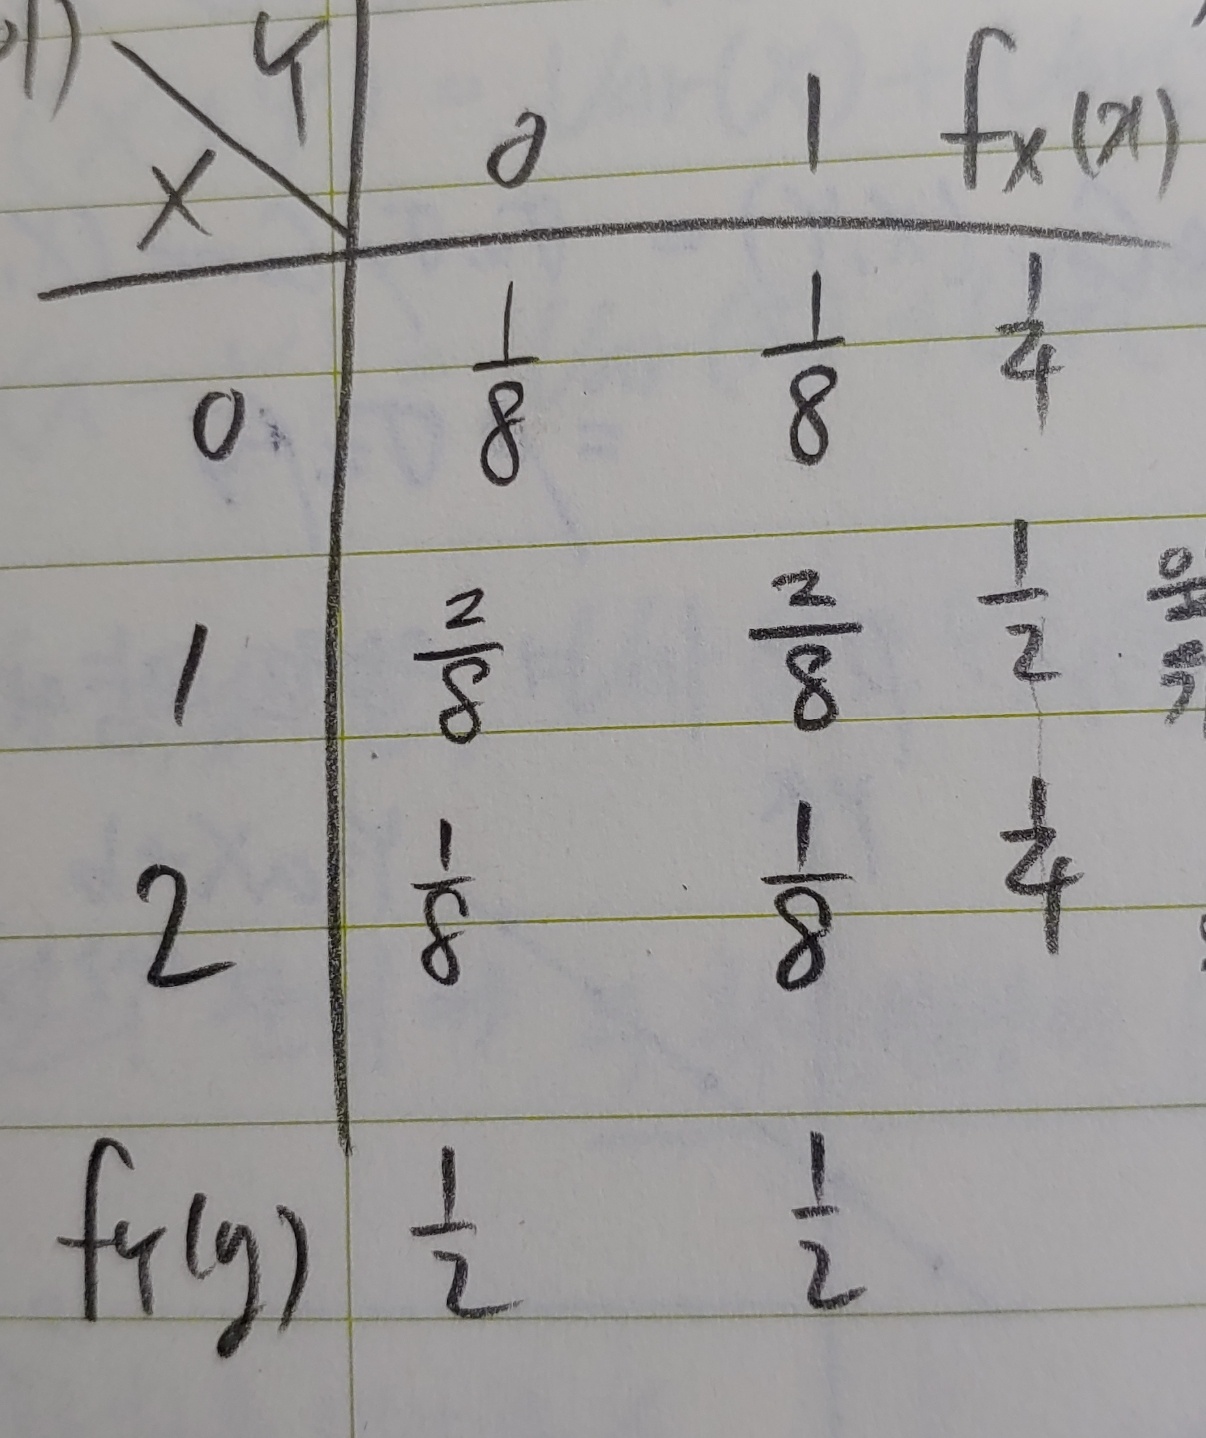 X Y 0 1 fx(x)
0 1/8 1/8 1/4
1 2/8 2/8 1/2
2 1/8 1/8 1/4
fY(y) 1/2 1/2